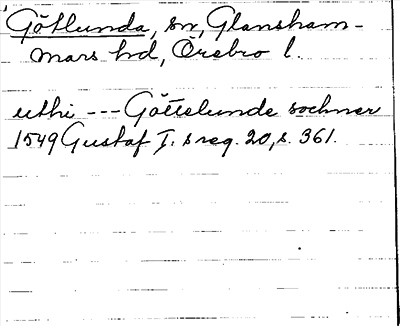 Götlunda, sn, Glansham-
mars hd, Örebro l.
uthi --- Göttelunde sochner
1549 Gustaf I:s reg. 20, s. 361.